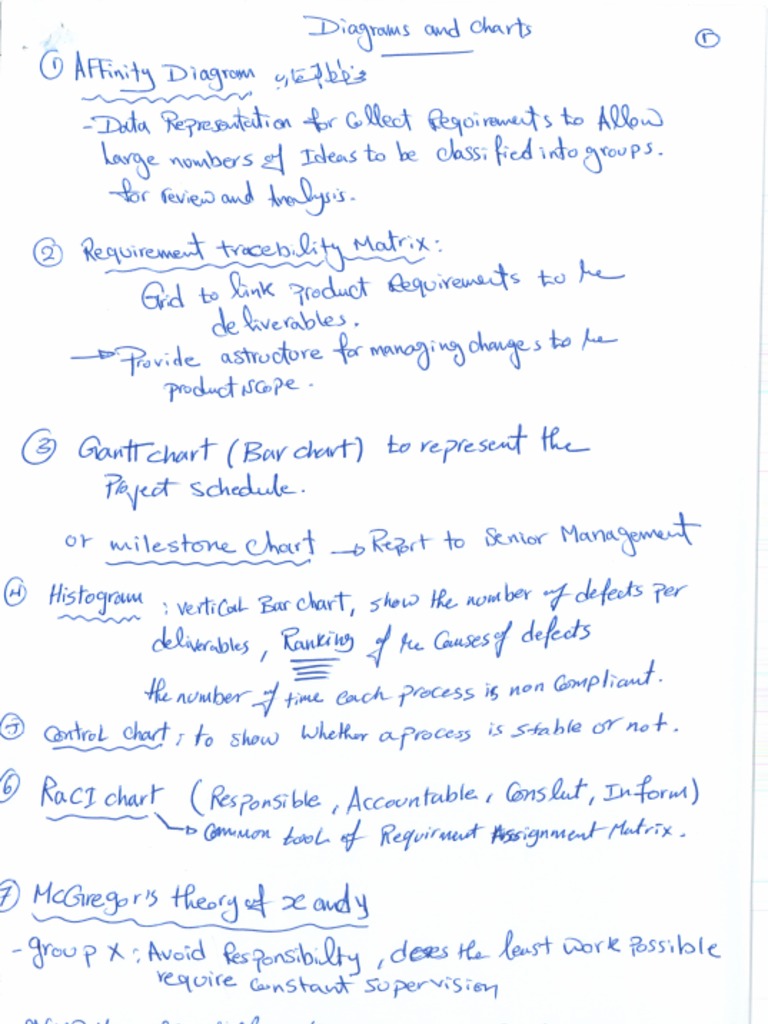 Diagrams and charts
① Affinity Diagram
- Data Representation for Collect Requirements to Allow
Large numbers of Ideas to be classified into groups.
for review and Analysis.
② Requirement tracebility Matrix:
Grid to link product Requirements to the
deliverables.
→ Provide a structure for managing changes to the
product scope.
③ Gantt chart (Bar chart) to represent the
Project schedule.
or milestone chart → Report to Senior Management
④ Histogram : vertical Bar chart, show the number of defects per
deliverables, Ranking of the Causes of defects
the number of time each process is non Compliant.
⑤ Control chart; to show whether a process is stable or not.
⑥ RaCI chart (Responsible, Accountable, Conslut, Inform)
→ Common tool of Requirment Assignment Matrix.
⑦ McGregor's theory of x and y
- group X: Avoid Responsibilty, does the least work possible
require constant supervision